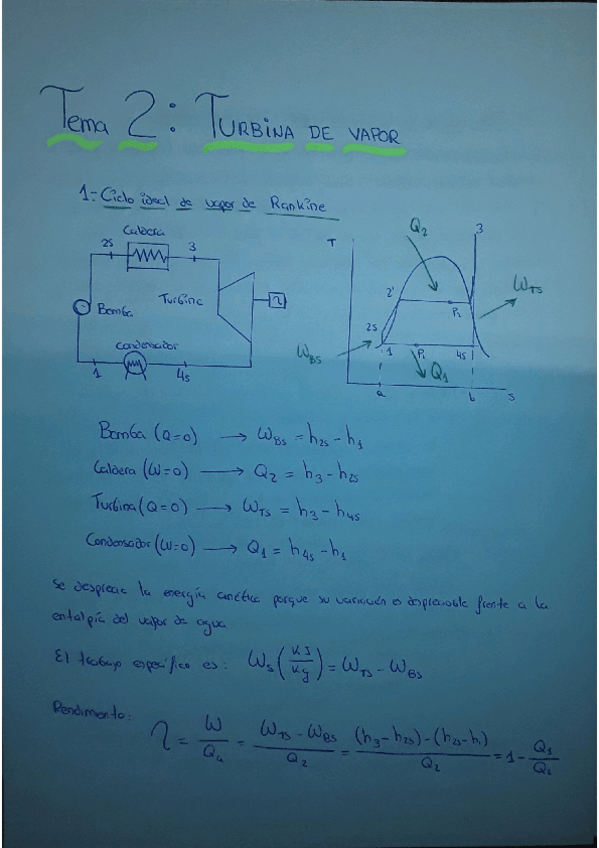 Tema 2: TURBINA DE VAPOR
1- Ciclo ideal de vapor de Rankine
Caldera
2s
3
Turbina
Bomba
Condensador
1
4s
T
Q2
3
WTS
2'
P2
2s
WBS
1
P1
4s
Q1
a
b
s
Bomba (Q=0) → WBS = h2s - h1
Caldera (W=0) → Q2 = h3 - h2s
Turbina (Q=0) → WTS = h3 - h4s
Condensador (W=0) → Q1 = h4s - h1
Se desprecia la energía cinética porque su variación es despreciable frente a la
entalpía del vapor de agua
El trabajo específico es: Ws (KJ/Kg) = WTS - WBS
Rendimiento: η = W/Q4 = (WTS - WBS)/Q2 = ((h3 - h2s) - (h2s - h1))/Q2 = 1 - Q1/Q2